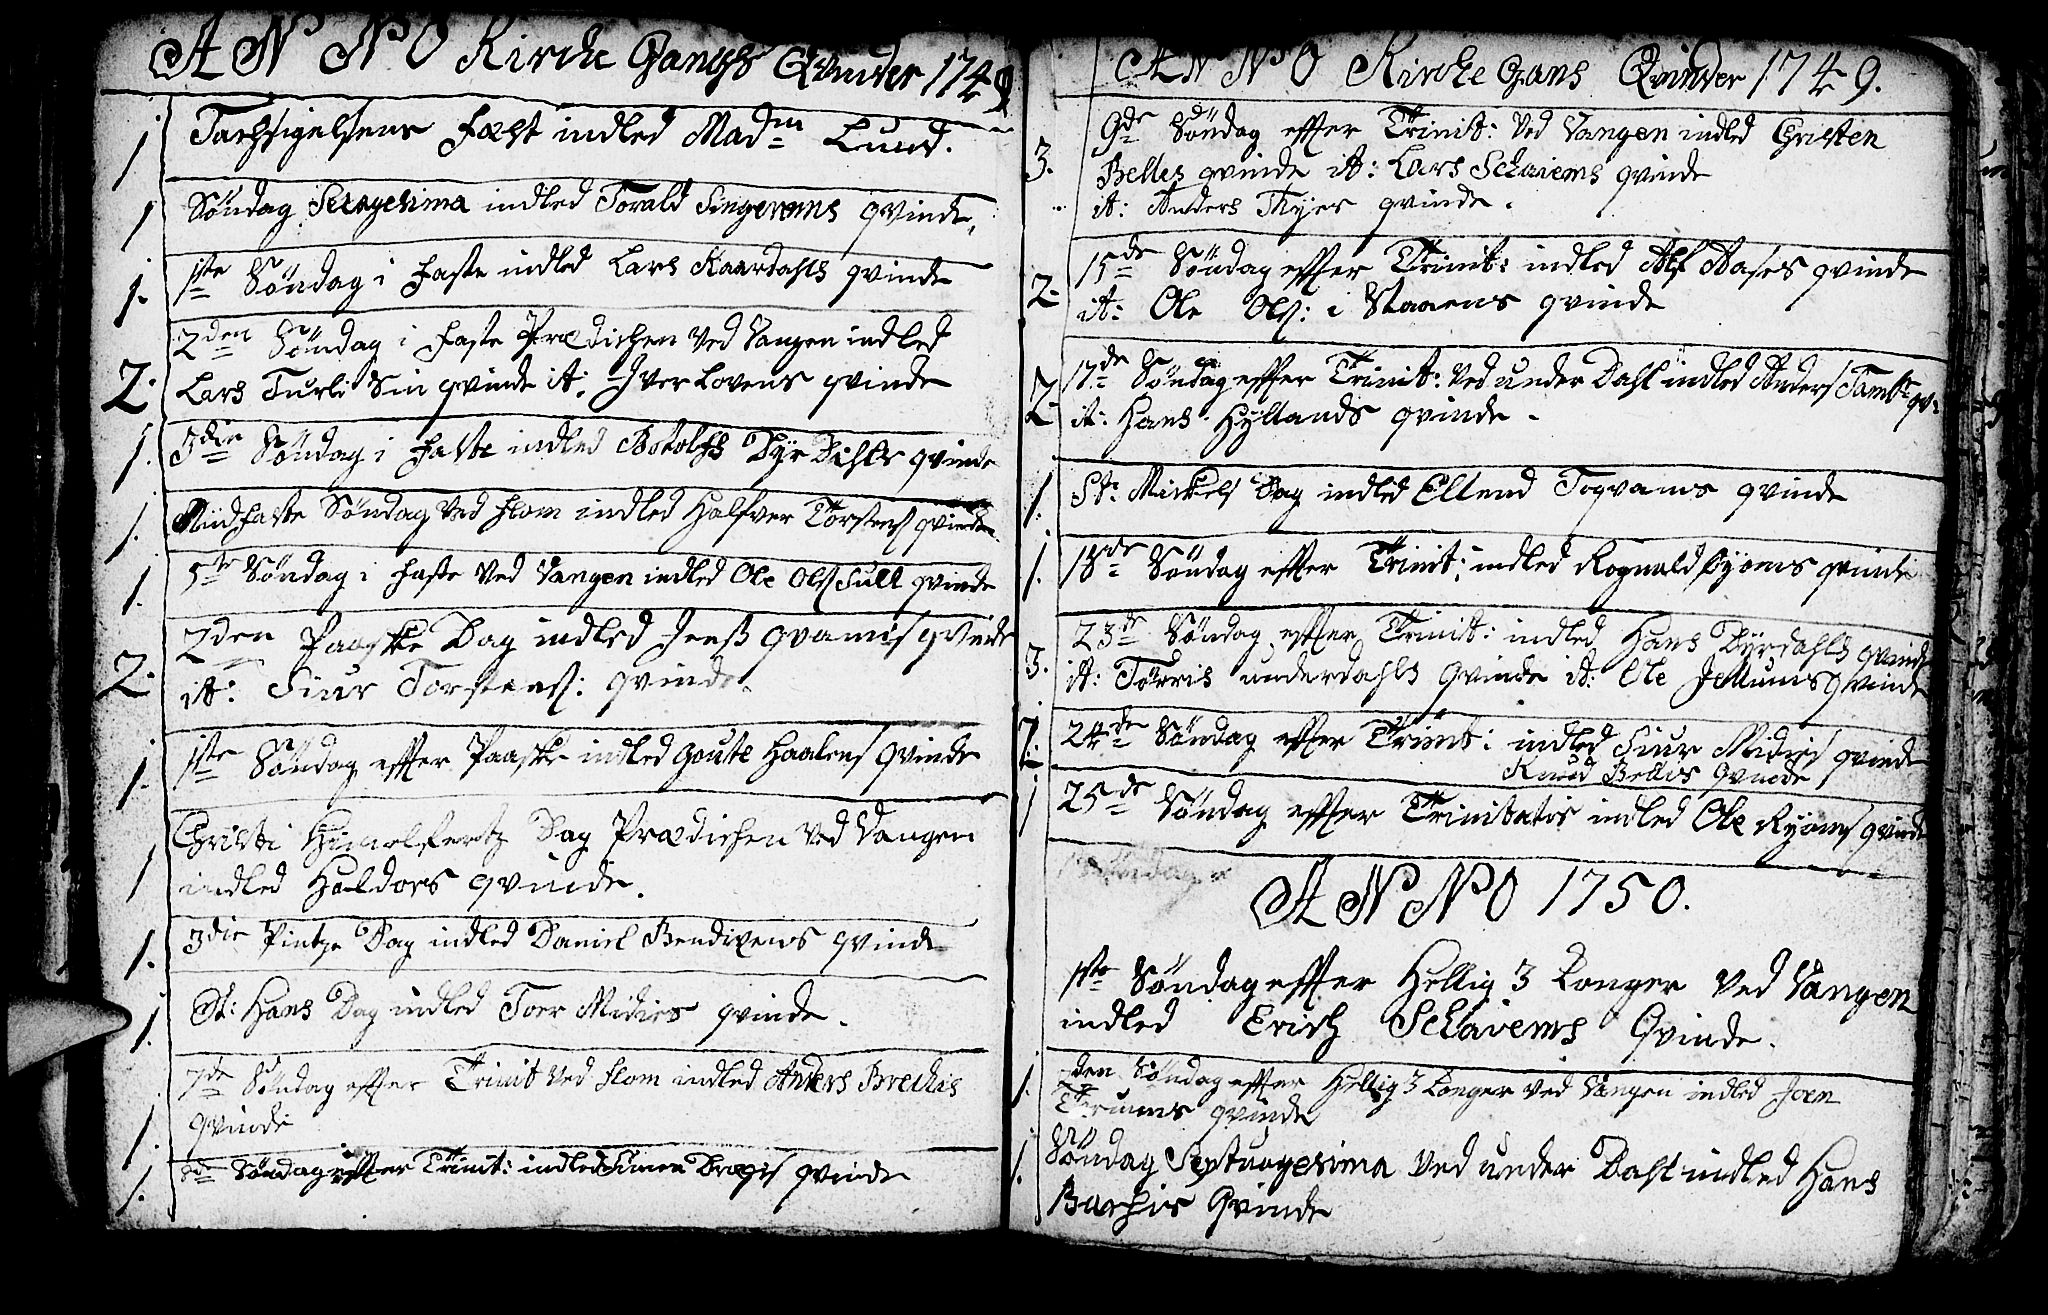 ANNO Kirche Gangs Qvinder 1749
1 Tachsigelsens Fæst indled Madm Lund.
1 Søndag Sexagesima indled Torald Singerems qvinde,
1. 1ste Søndag i Faste indled Lars Kaardahls qvinde
2den Søndag i Faste Prædichen ved Vangen indled
2. Lars Turli Sin qvinde it: Iver Lovens qvinde
1. 3die Søndag i Faste indled Botolfs Dyr Dahls qvinde
1. Midfaste Søndag ved Flom indled Halfver Torstens qvinde
1. 5te Søndag i Faste ved Vangen indled Ole Ols: Full qvinde
2den Paaske Dag indled Jens qvamis qvinde
2. it: Siur Torstens: qvinde.
1. 1ste Søndag effter Paaske indled Goute Haalens qvinde
Christi Himelfertz Dag Prædichen ved Vangen
1 indled Haldors qvinde.
1. 3die Pintze Dag indled Daniel Bendixens qvinde
1. St: Hans Dag indled Toer Midies qvinde.
7de Søndag effter Trinit ved Flom indled Anders Brechis
1. qvinde
1. 8de Søndag effter Trinit: indled Simen Drægis qvinde
ANNO Kirche Gans Qvinder 1749.
9de Søndag effter Trinit: ved Vangen indled Christen
3. Belles qvinde it: Lars Schaiems qvinde
it: Anders Thyes qvinde.
15de Søndag effter Trinit: indled Alf Aases qvinde
2. it: Ole Ols: i Staaens qvinde
17de Søndag effter Trinit: ved under Dahl indled Anders Tamb: qv:
2 it: Hans Hyllands qvinde.
1. St: Mickels Dag indled Ellend Toqvams qvinde
1. 18de Søndag effter Trinit: indled Rognald Ryoms qvinde
23de Søndag effter Trinit: indled Hans Dyrdahls qvinde
3. it: Torris underdahls qvinde it: Ole Jellums qvinde
2. 24de Søndag effter Trinit: indled Siur Midies qvinde
Knud Bellis qvinde
1 25de Søndag effter Trinitatis indled Ole Ryoms qvinde
ANNO 1750.
1ste Søndag effter Hellig 3 Konger ved Vangen
indled Erich Schaiems Qvinde.
1. 2den Søndag effter Hellig 3 Konger ved Vangen indled Joen
Terums qvinde
1. Søndag Septuagesima ved under Dahl indled Hans
Buchis Qvinde